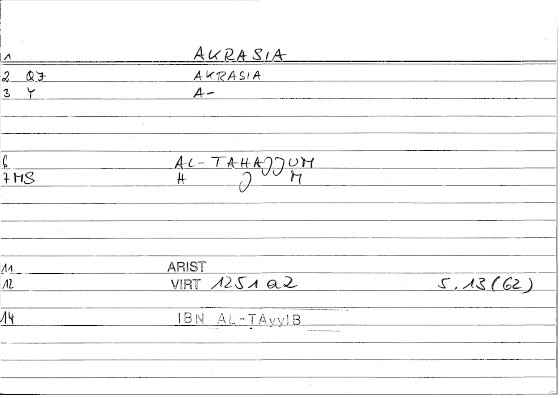 1 AKRASIA
2 QJ AKRASIA
3 Y A-
6 AL-TAHAJJUM
7 MS H J M
11 ARIST
12 VIRT 1251 a2 5.13(62)
14 IBN AL-TAyyIB